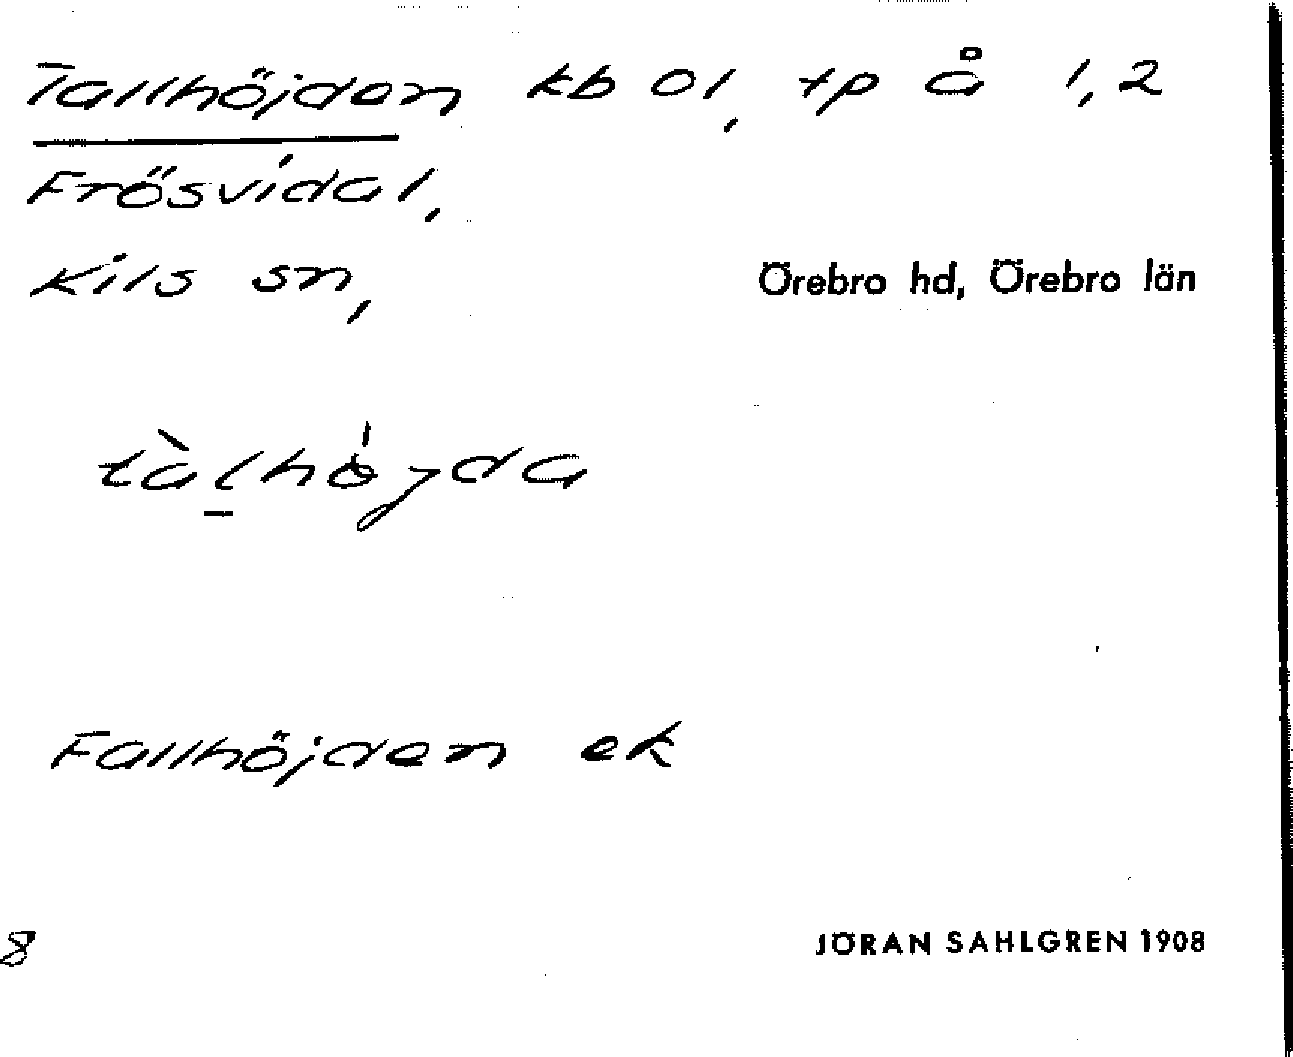 Tallhöjden kb ol, tp å 1,2
Frösvidal,
Kils sn,
Örebro hd, Örebro län
tàlhöjda
Fallhöjden ek
8
JÖRAN SAHLGREN 1908